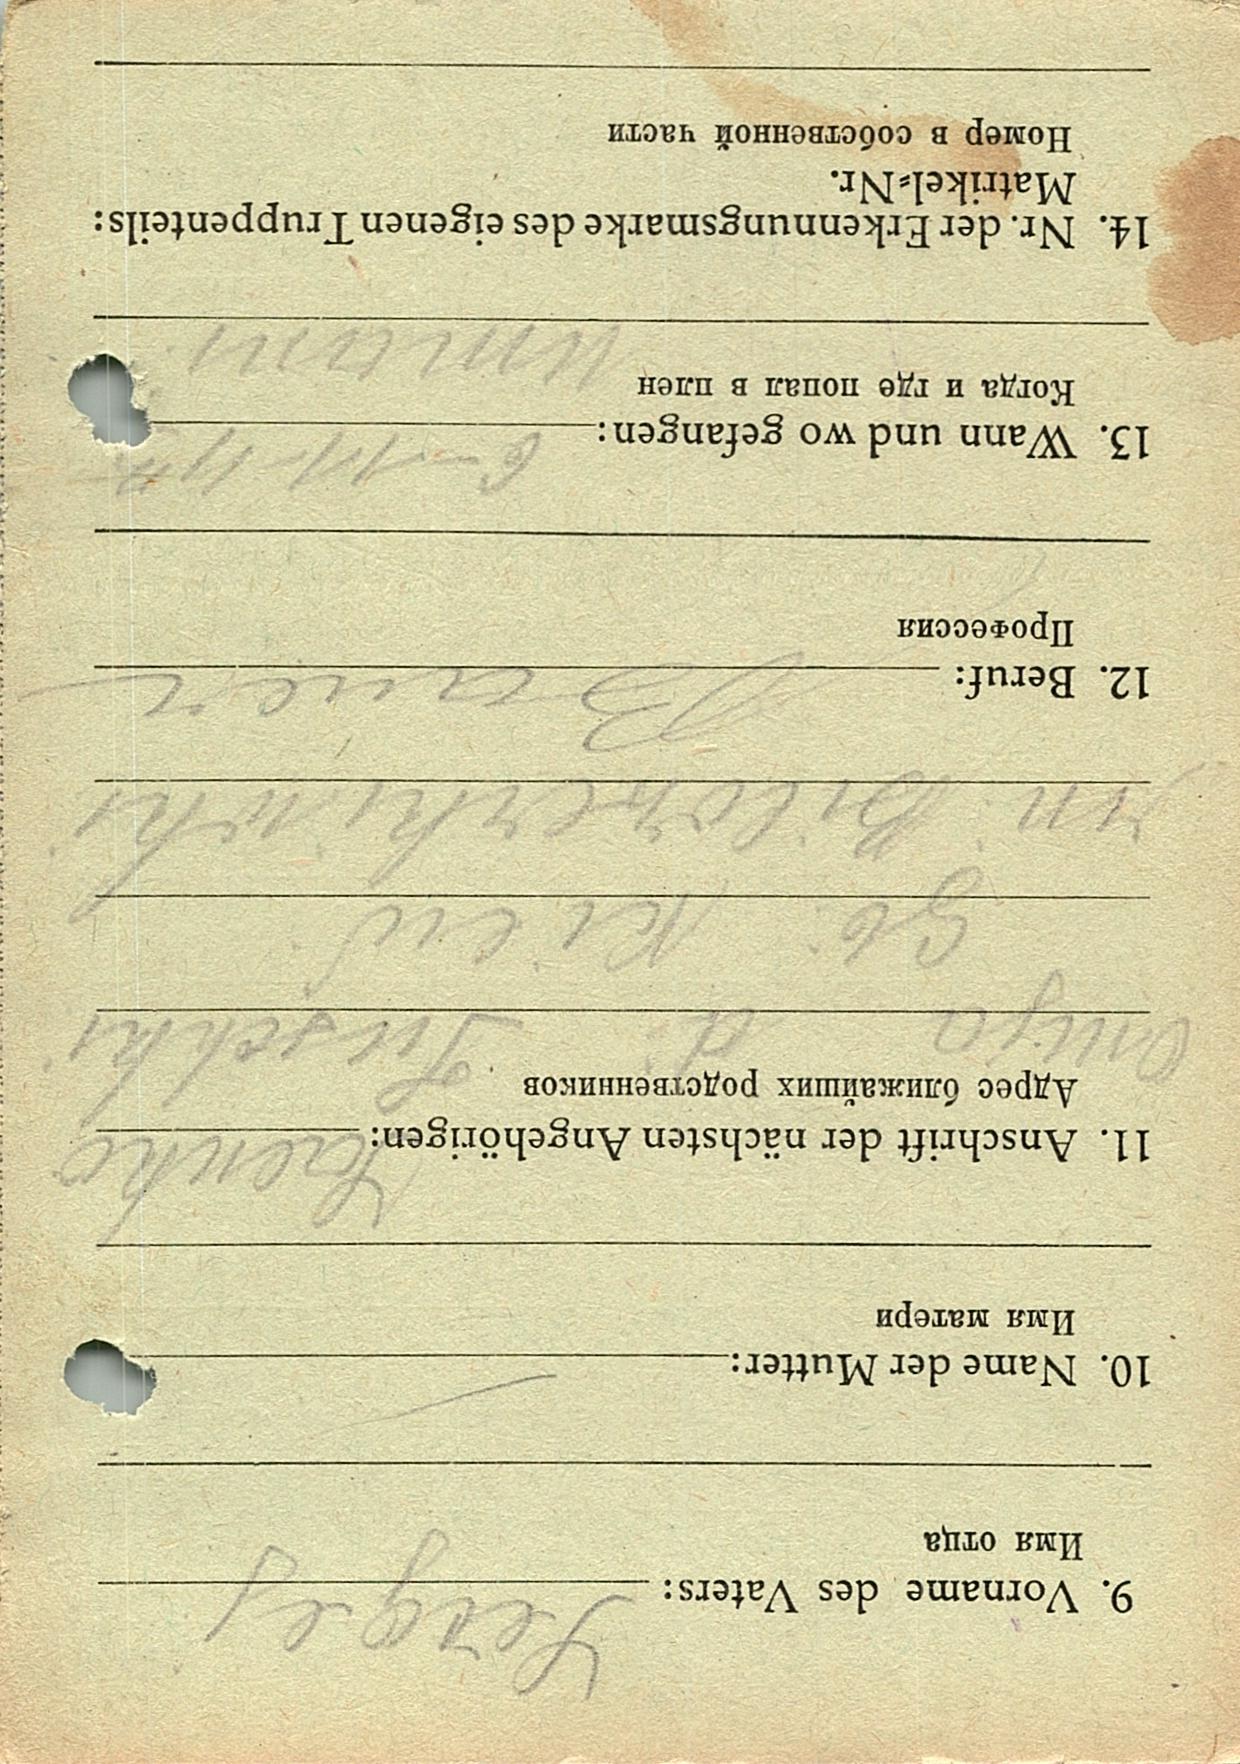 9. Vorname des Vaters: Sergej
Имя отца
10. Name der Mutter: —
Имя матери
11. Anschrift der nächsten Angehörigen:
Адрес ближайших родственников
d.
gb. Kiew
12. Beruf: Bauer
Профессия
13. Wann und wo gefangen:
Когда и где попал в плен
Umani
14. Nr. der Erkennungsmarke des eigenen Truppenteils:
Matrikel=Nr.
Номер в собственной части